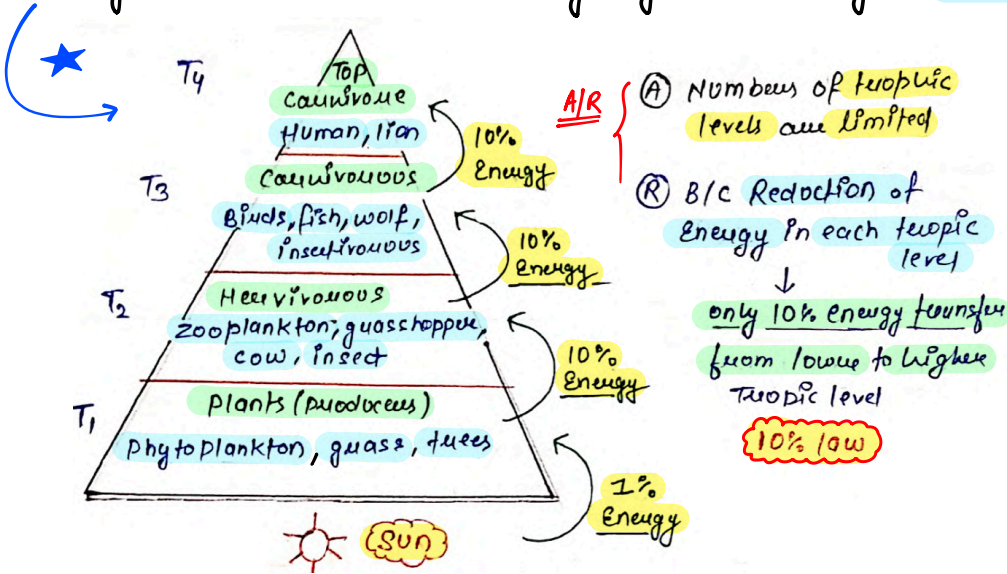 T4
Top
Carnivore
Human, lion
10%
Energy
T3
Carnivorous
Birds, fish, wolf,
insectivorous
10%
Energy
T2
Herrivorous
Zooplankton, grasshopper,
cow, insect
10%
Energy
T1
Plants (producers)
Phytoplankton, grass, trees
1%
Energy
Sun
A/R
(A) Numbers of trophic
levels are limited
(R) B/C Reduction of
Energy in each tropic
level
↓
only 10% energy transfer
from lower to higher
Tropic level
10% law